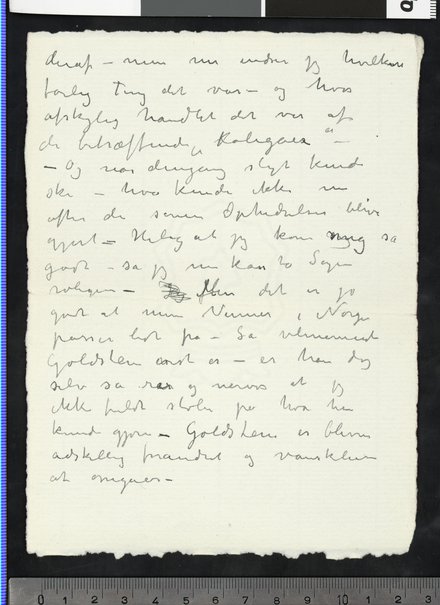 deraf – men nu indser jeg hvilken
farlig Ting det var – og hvor
afskylig handlet det var af
de betræffende "Kolegaer" –
– Og naar dengang sligt kunde
ske – hva kunde ikke nu
efter de senere Ophidselser blive
gjort – Heldig at jeg kom mig så
godt – så jeg nu kan ta Sagen
roligere – Men det er jo
godt at mine Venner i Norge
passer lidt på – Så velmenende
Goldstein end er – er han dog
selv så og nervøs at jeg
ikke fuldt stoler på hva han
kunde gjøre – Goldstein er bleven
adskillig forandret og vanskeligere
at omgåes –